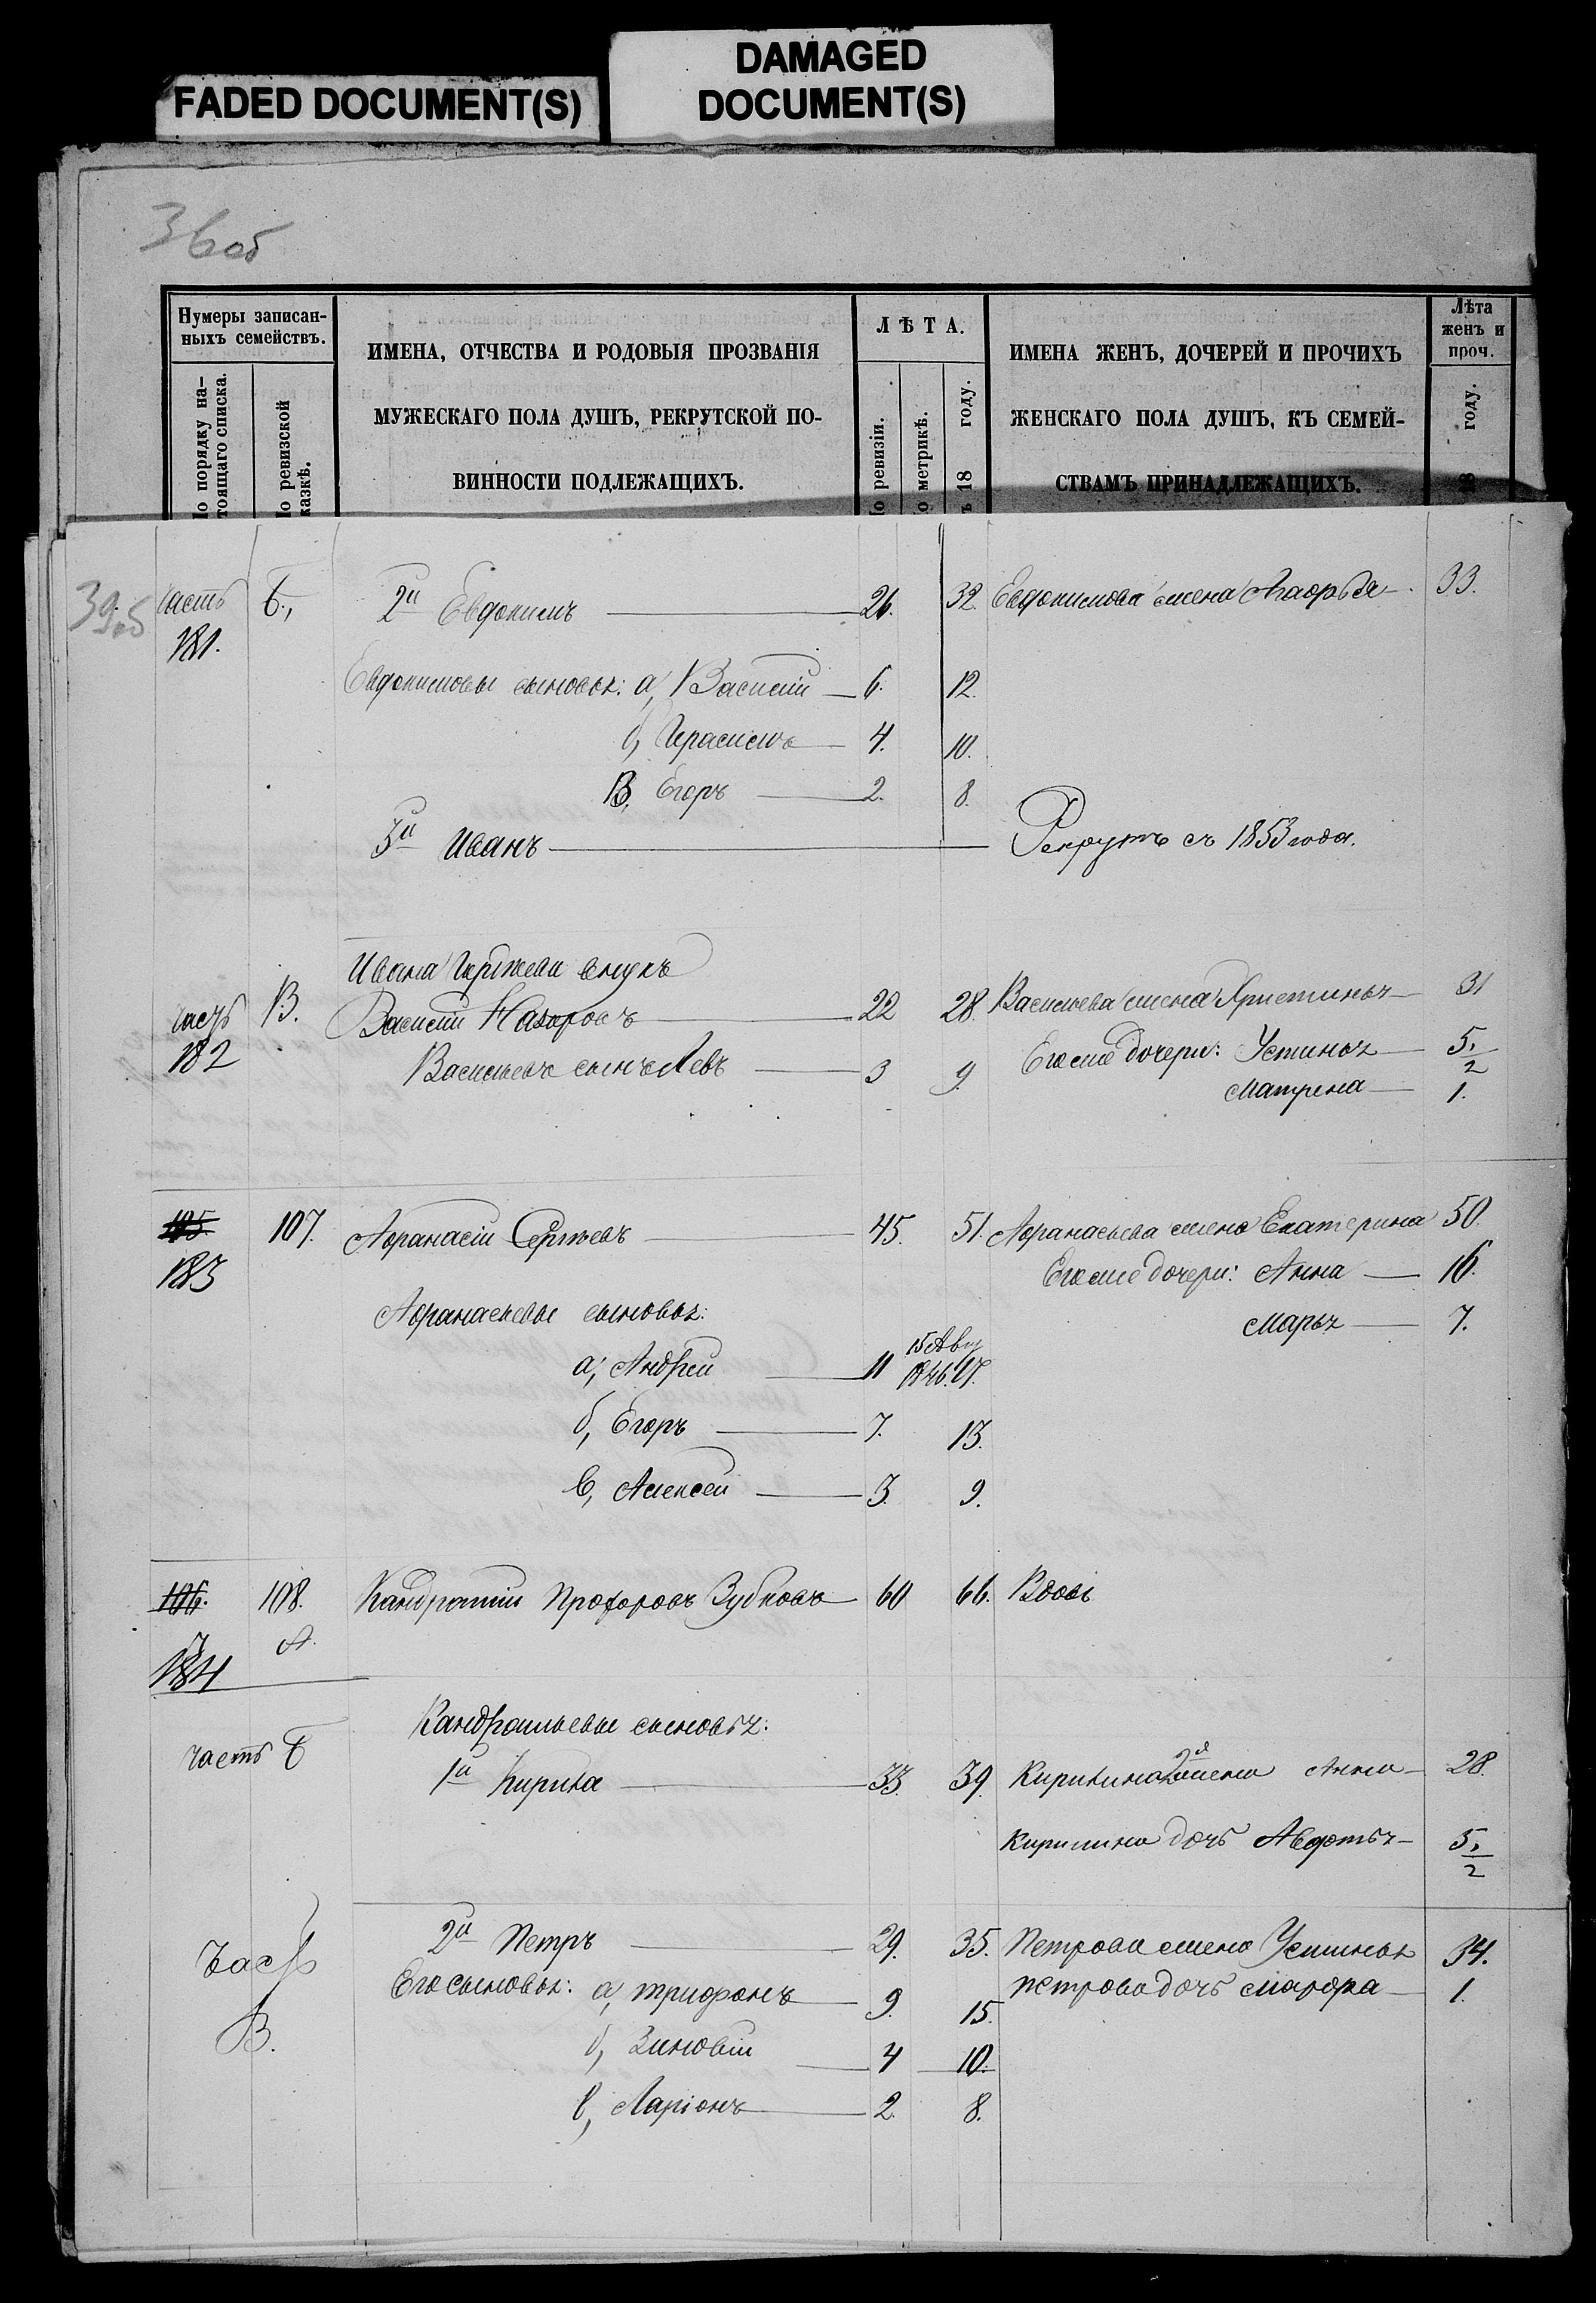 FADED DOCUMENT(S)
DAMAGED
DOCUMENT(S)
36 об
Нумеры записан-
ныхъ семействъ.
По порядку на-
стоящаго списка.
По ревизской
сказкѣ.
ИМЕНА, ОТЧЕСТВА И РОДОВЫЯ ПРОЗВАНІЯ
МУЖЕСКАГО ПОЛА ДУШЪ, РЕКРУТСКОЙ ПО-
ВИННОСТИ ПОДЛЕЖАЩИХЪ.
ЛѢТА.
По ревизіи.
По метрикѣ.
ъ 18 году.
ИМЕНА ЖЕНЪ, ДОЧЕРЕЙ И ПРОЧИХЪ
ЖЕНСКАГО ПОЛА ДУШЪ, КЪ СЕМЕЙ-
СТВАМЪ ПРИНАДЛЕЖАЩИХЪ.
Лѣта
женъ и
проч.
18 году.
39 об
часть Б., 2й Евдокимъ 26. 32. Евдокимова жена Агафья 33.
181.
Евдокимовы сыновья: а, Василій 6. 12.
б, Герасимъ 4. 10.
В, Егоръ 2. 8.
3й Иванъ Рекрутъ съ 1853 года.
Ивана Сергѣева внукъ
часть В. Василій Назаровъ 22 28. Васильева жена Христинья 31
182 Васильевъ сынъ Левъ 3 9. Егоже дочери: Устинья 5 1/2
Матрена 1.
105. 107. Афанасій Сергѣевъ 45. 51. Афанасьева жена Екатерина 50.
183 Егоже дочери: Анна 16.
Афанасьевы сыновья:
Марья 7.
а, Андрей 11 15 Авгу 1846. 17.
б, Егоръ 7. 13.
в, Алексей 3. 9.
106. 108. Кандратій Прохоровъ Зубковъ 60 66. Вдовъ
А.
184
Кандратьевы сыновья:
часть Б 1й Кирила 33. 39. Кирилина 2я жена Анна 28.
Кирилина дочь Авдотья 5 1/2
часть 2й Петръ 29. 35. Петрова жена Устинья 34.
Его сыновья: а, Трифонъ 9. 15. Петрова дочь Марфа 1.
В. б, Зиновій 4 10.
в, Ларіонъ 2. 8.